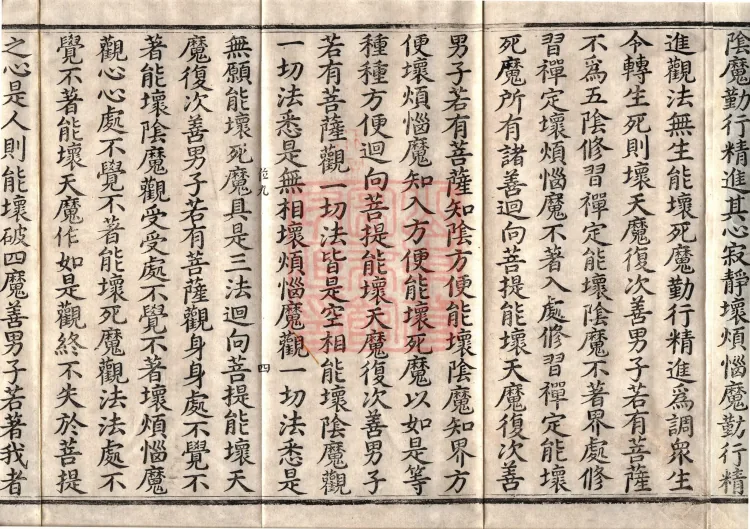 陰魔勤行精進其心寂靜壞煩惱魔勤行精
進觀法無生能壞死魔勤行精進爲調衆生
令轉生死則壞天魔復次善男子若有菩薩
不爲五陰修習禪定能壞陰魔不著界處修
習禪定壞煩惱魔不著入處修習禪定能壞
死魔所有諸善迴向菩提能壞天魔復次善
男子若有菩薩知陰方便能壞陰魔知界方
便壞煩惱魔知入方便能壞死魔以如是等
種種方便迴向菩提能壞天魔復次善男子
若有菩薩觀一切法皆是空相能壞陰魔觀
一切法悉是無相壞煩惱魔觀一切法悉是
四
無願能壞死魔具是三法迴向菩提能壞天
魔復次善男子若有菩薩觀身身處不覺不
著能壞陰魔觀受受處不覺不著壞煩惱魔
觀心心處不覺不著能壞死魔觀法法處不
覺不著能壞天魔作如是觀終不失於菩提
之心是人則能壞破四魔善男子若著我者